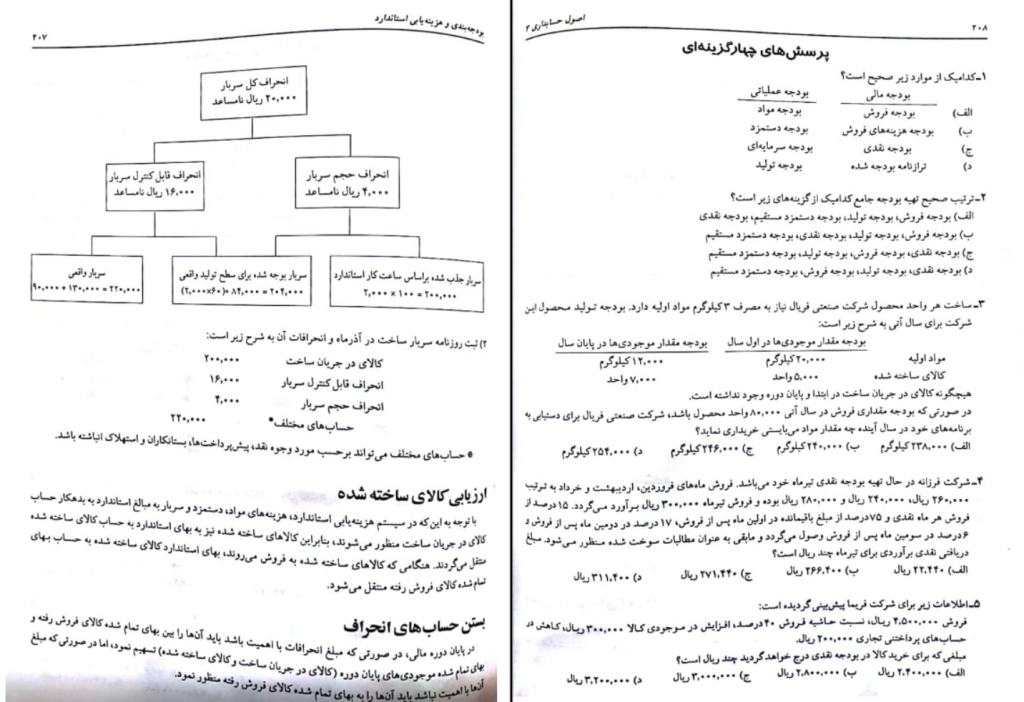 ۲۰۸
اصول حسابداری ۳
پرسش‌های چهارگزینه‌ای
۱ـ کدامیک از موارد زیر صحیح است؟
بودجه مالی بودجه عملیاتی
الف) بودجه فروش بودجه مواد
ب) بودجه هزینه‌های فروش بودجه دستمزد
ج) بودجه نقدی بودجه سرمایه‌ای
د) ترازنامه بودجه شده بودجه تولید
۲ـ ترتیب صحیح تهیه بودجه جامع کدامیک از گزینه‌های زیر است؟
الف) بودجه فروش، بودجه تولید، بودجه دستمزد مستقیم، بودجه نقدی
ب) بودجه فروش، بودجه تولید، بودجه نقدی، بودجه دستمزد مستقیم
ج) بودجه نقدی، بودجه فروش، بودجه تولید، بودجه دستمزد مستقیم
د) بودجه نقدی، بودجه تولید، بودجه فروش، بودجه دستمزد مستقیم
۳ـ ساخت هر واحد محصول شرکت صنعتی فریال نیاز به مصرف ۳ کیلوگرم مواد اولیه دارد. بودجه تولید محصول این
شرکت برای سال آتی به شرح زیر است:
بودجه مقدار موجودی‌ها در اول سال بودجه مقدار موجودی‌ها در پایان سال
مواد اولیه ۲۰,۰۰۰ کیلوگرم ۱۲,۰۰۰ کیلوگرم
کالای ساخته شده ۵,۰۰۰ واحد ۷,۰۰۰ واحد
هیچگونه کالای در جریان ساخت در ابتدا و پایان دوره وجود نداشته است.
در صورتی که بودجه مقداری فروش در سال آتی ۸۰,۰۰۰ واحد محصول باشد، شرکت صنعتی فریال برای دستیابی به
برنامه‌های خود در سال آینده چه مقدار مواد می‌بایستی خریداری نماید؟
الف) ۲۳۸,۰۰۰ کیلوگرم ب) ۲۴۰,۰۰۰ کیلوگرم ج) ۲۴۶,۰۰۰ کیلوگرم د) ۲۵۴,۰۰۰ کیلوگرم
۴ـ شرکت فرزانه در حال تهیه بودجه نقدی تیرماه خود می‌باشد. فروش ماه‌های فروردین، اردیبهشت و خرداد به ترتیب
۲۶۰,۰۰۰ ریال، ۲۴۰,۰۰۰ ریال و ۲۸۰,۰۰۰ ریال بوده و فروش تیرماه ۳۰۰,۰۰۰ ریال برآورد می‌گردد. ۱۵ درصد از
فروش هر ماه نقدی و ۷۵ درصد از مبلغ باقیمانده در اولین ماه پس از فروش، ۱۷ درصد در دومین ماه پس از فروش و
۶ درصد در سومین ماه پس از فروش وصول می‌گردد و مابقی به عنوان مطالبات سوخت شده منظور می‌شود. مبلغ
دریافتی نقدی برآوردی برای تیرماه چند ریال است؟
الف) ۲۲,۴۴۰ ریال ب) ۲۶۶,۴۰۰ ریال ج) ۲۷۱,۴۴۰ ریال د) ۳۱۱,۴۰۰ ریال
۵ـ اطلاعات زیر برای شرکت فریما پیش‌بینی گردیده است:
فروش ۴,۵۰۰,۰۰۰ ریال، نسبت حاشیه فروش ۴۰ درصد، افزایش در موجودی کالا ۳۰۰,۰۰۰ ریال، کاهش در
حساب‌های پرداختنی تجاری ۲۰۰,۰۰۰ ریال.
مبلغی که برای خرید کالا در بودجه نقدی درج خواهد گردید چند ریال است؟
الف) ۲,۴۰۰,۰۰۰ ریال ب) ۲,۸۰۰,۰۰۰ ریال ج) ۳,۰۰۰,۰۰۰ ریال د) ۳,۲۰۰,۰۰۰ ریال
بودجه‌بندی و هزینه‌یابی استاندارد
۲۰۷
انحراف کل سربار
۲۰,۰۰۰ ریال نامساعد
انحراف حجم سربار
۴,۰۰۰ ریال نامساعد
انحراف قابل کنترل سربار
۱۶,۰۰۰ ریال نامساعد
سربار جذب شده براساس ساعت کار استاندارد
۲,۰۰۰ × ۱۰۰ = ۲۰۰,۰۰۰
سربار بوجه شده برای سطح تولید واقعی
(۲,۰۰۰×۶۰)+ ۸۴,۰۰۰ = ۲۰۴,۰۰۰
سربار واقعی
۹۰,۰۰۰ + ۱۳۰,۰۰۰ = ۲۲۰,۰۰۰
۲) ثبت روزنامه سربار ساخت در آذرماه و انحرافات آن به شرح زیر است:
کالای در جریان ساخت ۲۰۰,۰۰۰
انحراف قابل کنترل سربار ۱۶,۰۰۰
انحراف حجم سربار ۴,۰۰۰
حساب‌های مختلف* ۲۲۰,۰۰۰
* حساب‌های مختلف می‌تواند برحسب مورد وجوه نقد، پیش‌پرداخت‌ها، بستانکاران و استهلاک انباشته باشد.
ارزیابی کالای ساخته شده
با توجه به این که در سیستم هزینه‌یابی استاندارد، هزینه‌های مواد، دستمزد و سربار به مبالغ استاندارد به بدهکار حساب
کالای در جریان ساخت منظور می‌شوند، بنابراین کالاهای ساخته شده نیز به بهای استاندارد به حساب کالای ساخته شده
منتقل می‌گردند. هنگامی که کالاهای ساخته شده به فروش می‌روند، بهای استاندارد کالای ساخته شده به حساب بهای
تمام شده کالای فروش رفته منتقل می‌شود.
بستن حساب‌های انحراف
در پایان دوره مالی، در صورتی که مبلغ انحرافات با اهمیت باشد باید آن‌ها را بین بهای تمام شده کالای فروش رفته و
بهای تمام شده موجودی‌های پایان دوره (کالای در جریان ساخت و کالای ساخته شده) تسهیم نمود، اما در صورتی که مبلغ
آن‌ها با اهمیت نباشد باید آن‌ها را به بهای تمام شده کالای فروش رفته منظور نمود.